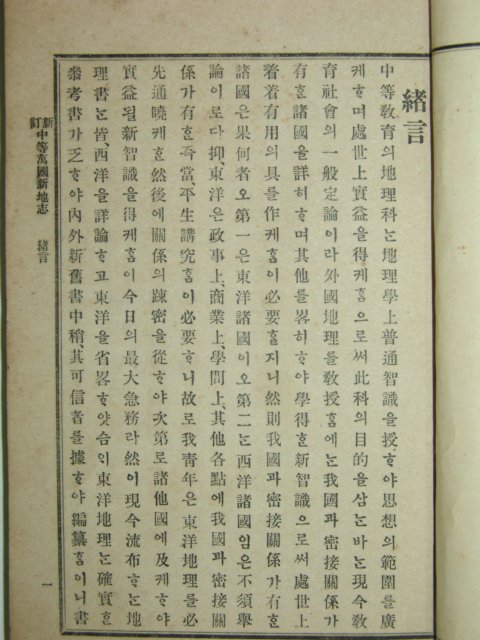 緖言
中等敎育의地理科는地理學上普通智識을授ᄒᆞ야思想의範圍를廣
케ᄒᆞ며處世上實益을得케ᄒᆞᆷ으로써此科의目的을삼는바는現今敎
育社會의一般定論이라外國地理를敎授ᄒᆞᆷ에는我國과密接關係가
有ᄒᆞᆫ諸國을詳히ᄒᆞ며其他를畧히ᄒᆞ야學得ᄒᆞᆫ新智識으로써處世上
着着有用의具를作케ᄒᆞᆷ이必要ᄒᆞᆯ지니然則我國과密接關係가有ᄒᆞᆫ
諸國은果何者오第一은東洋諸國이오第二는西洋諸國임은不須擧
論이로다抑、東洋은政事上、商業上、學問上、其他各點에我國과密接關
係가有ᄒᆞᆫ즉當、平生講究ᄒᆞᆷ이必要ᄒᆞ니故로我靑年은東洋地理를必
先通曉케ᄒᆞᆫ然後에關係의踈密을從ᄒᆞ야次第로諸他國에及케ᄒᆞ야
實益될新智識을得케ᄒᆞᆷ이今日의最大急務라然이現今流布ᄒᆞ는地
理書는皆、西洋을詳論ᄒᆞ고東洋을省畧ᄒᆞ얏슴이東洋地理는確實ᄒᆞᆫ
參考書가乏ᄒᆞ야內外新舊書中稍、其可信者를據ᄒᆞ야編纂ᄒᆞᆷ이니書
新訂中等萬國新地志 緖言
一